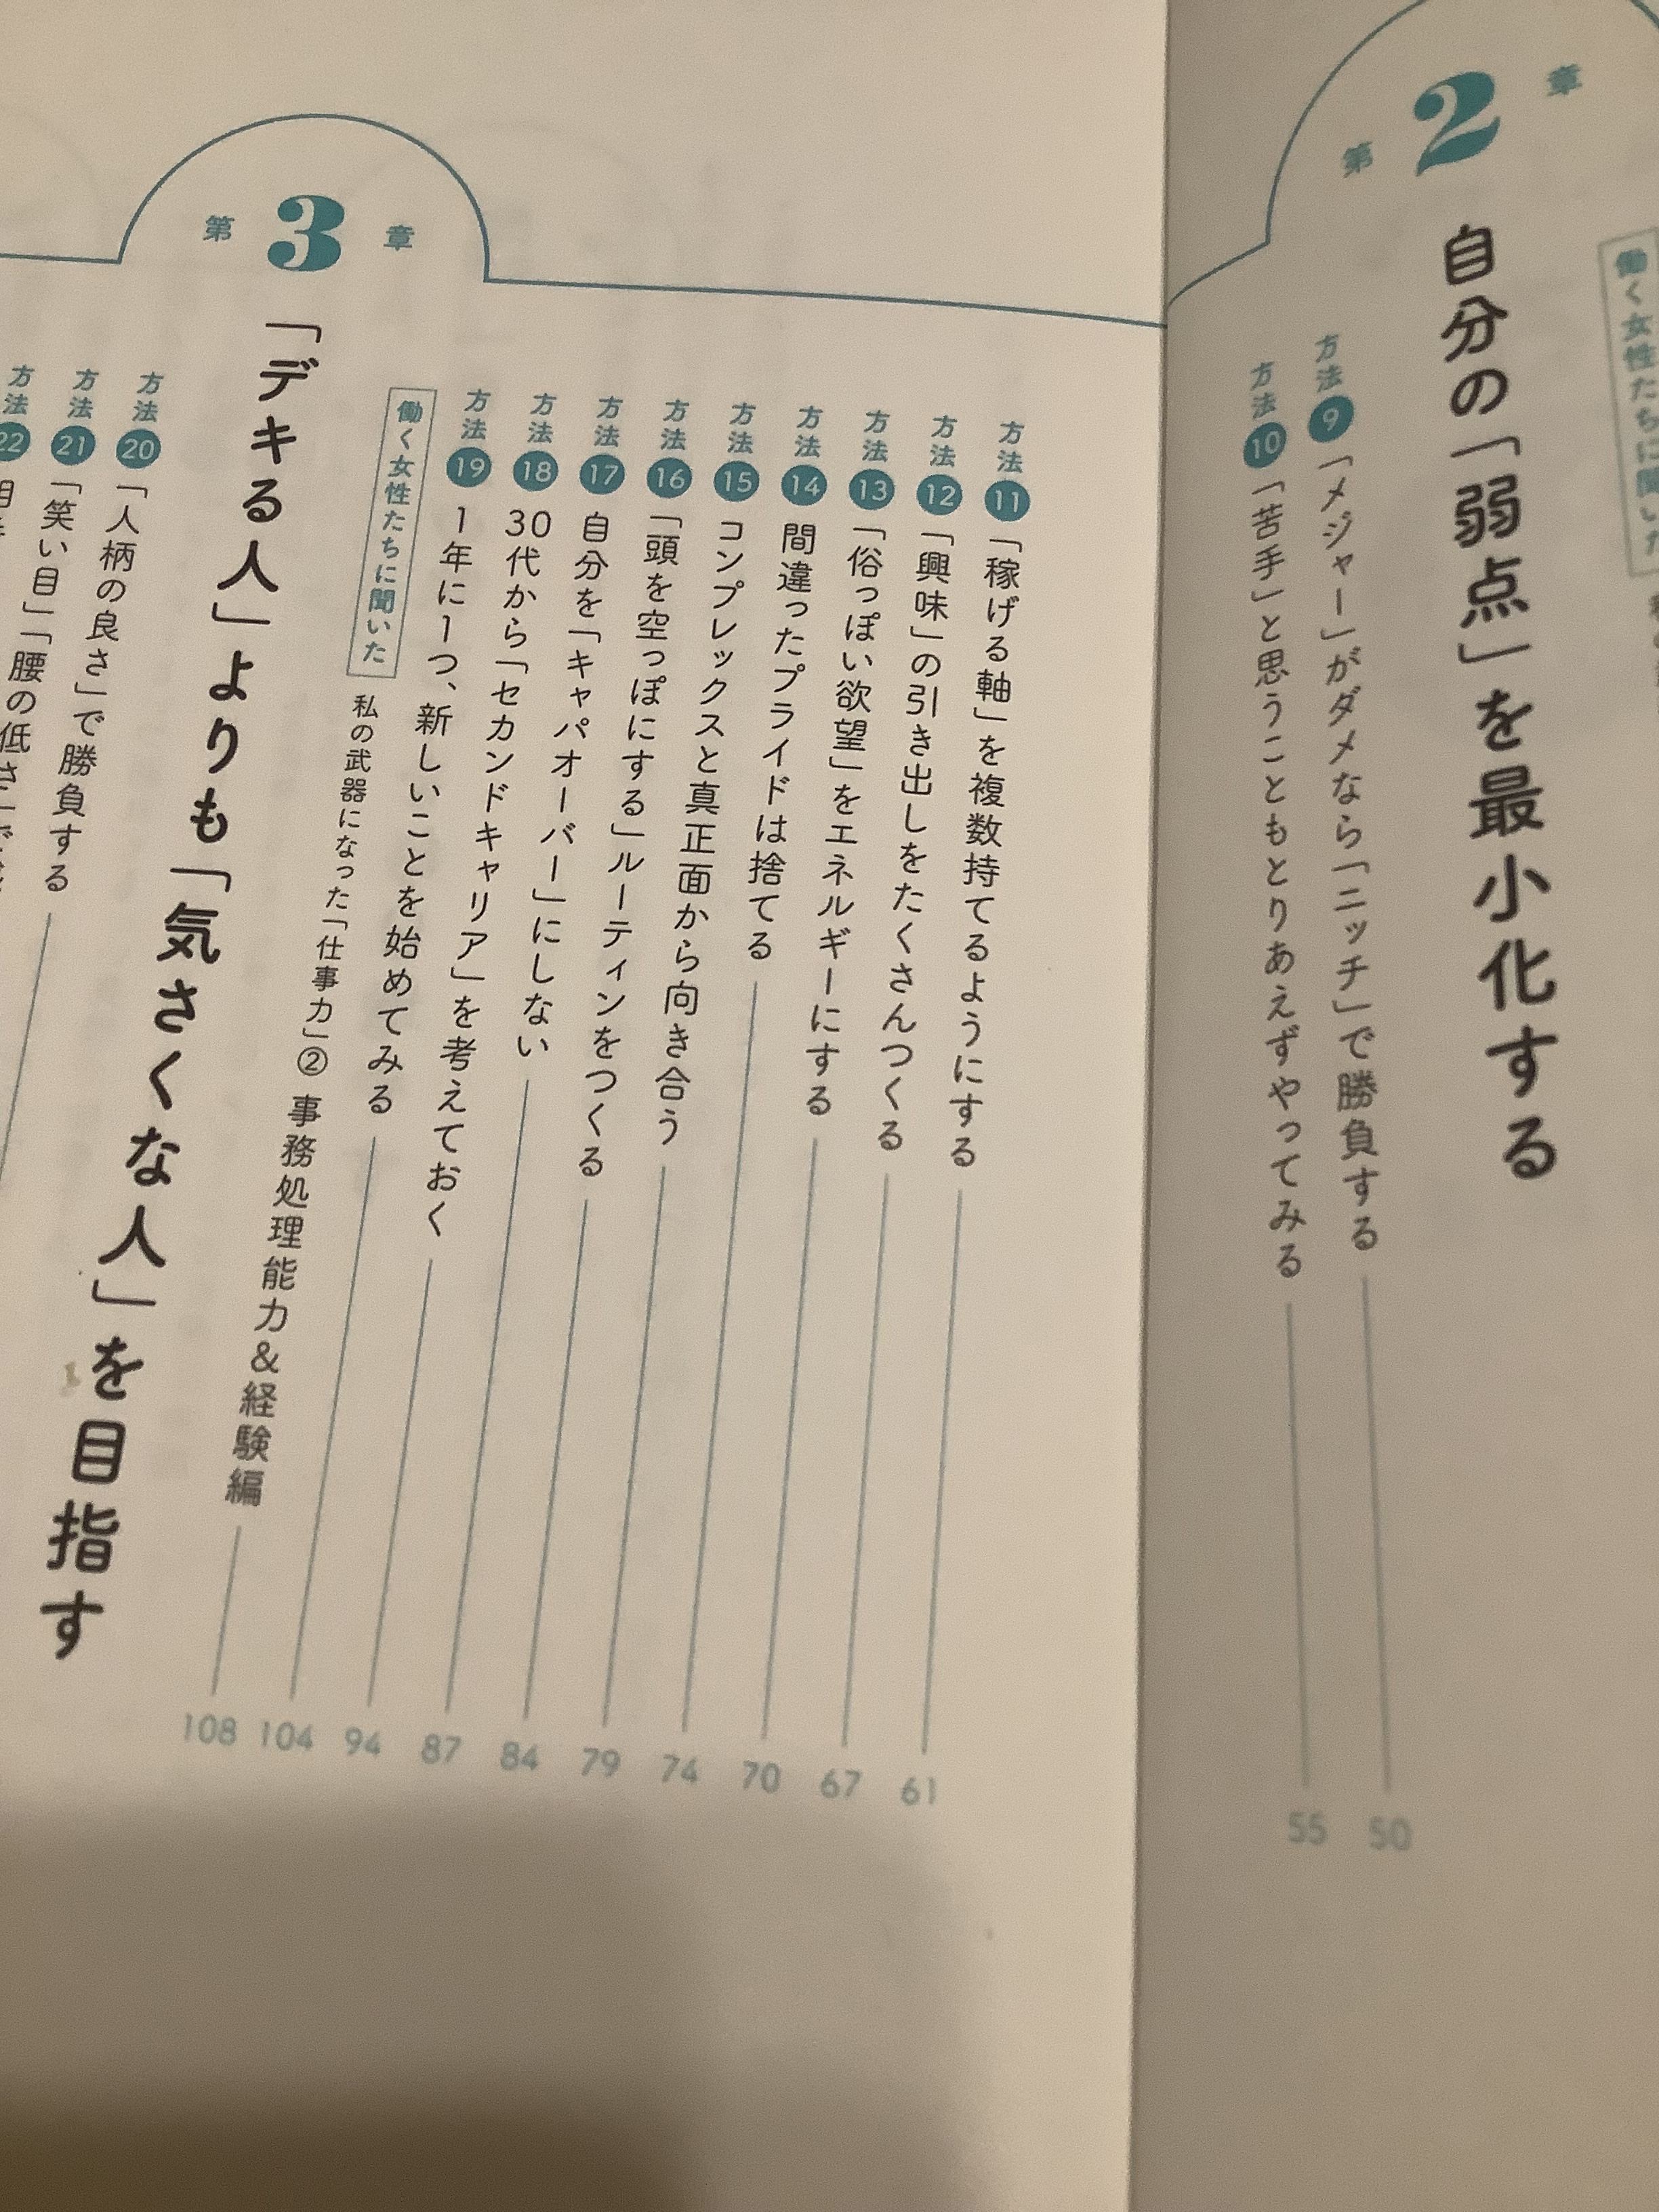 働く女性たちに聞いた
第2章
自分の「弱点」を最小化する
方法9 「メジャー」がダメなら「ニッチ」で勝負する 50
方法10 「苦手」と思うこともとりあえずやってみる 55
方法11 「稼げる軸」を複数持てるようにする 61
方法12 「興味」の引き出しをたくさんつくる 67
方法13 「俗っぽい欲望」をエネルギーにする 70
方法14 間違ったプライドは捨てる 74
方法15 コンプレックスと真正面から向き合う 79
方法16 「頭を空っぽにする」ルーティンをつくる 84
方法17 自分を「キャパオーバー」にしない 87
方法18 30代から「セカンドキャリア」を考えておく 94
方法19 1年に1つ、新しいことを始めてみる 104
働く女性たちに聞いた 私の武器になった「仕事力」② 事務処理能力&経験編 108
第3章
「デキる人」よりも「気さくな人」を目指す
方法20 「人柄の良さ」で勝負する
方法21 「笑い目」「腰の低さ」で
方法22